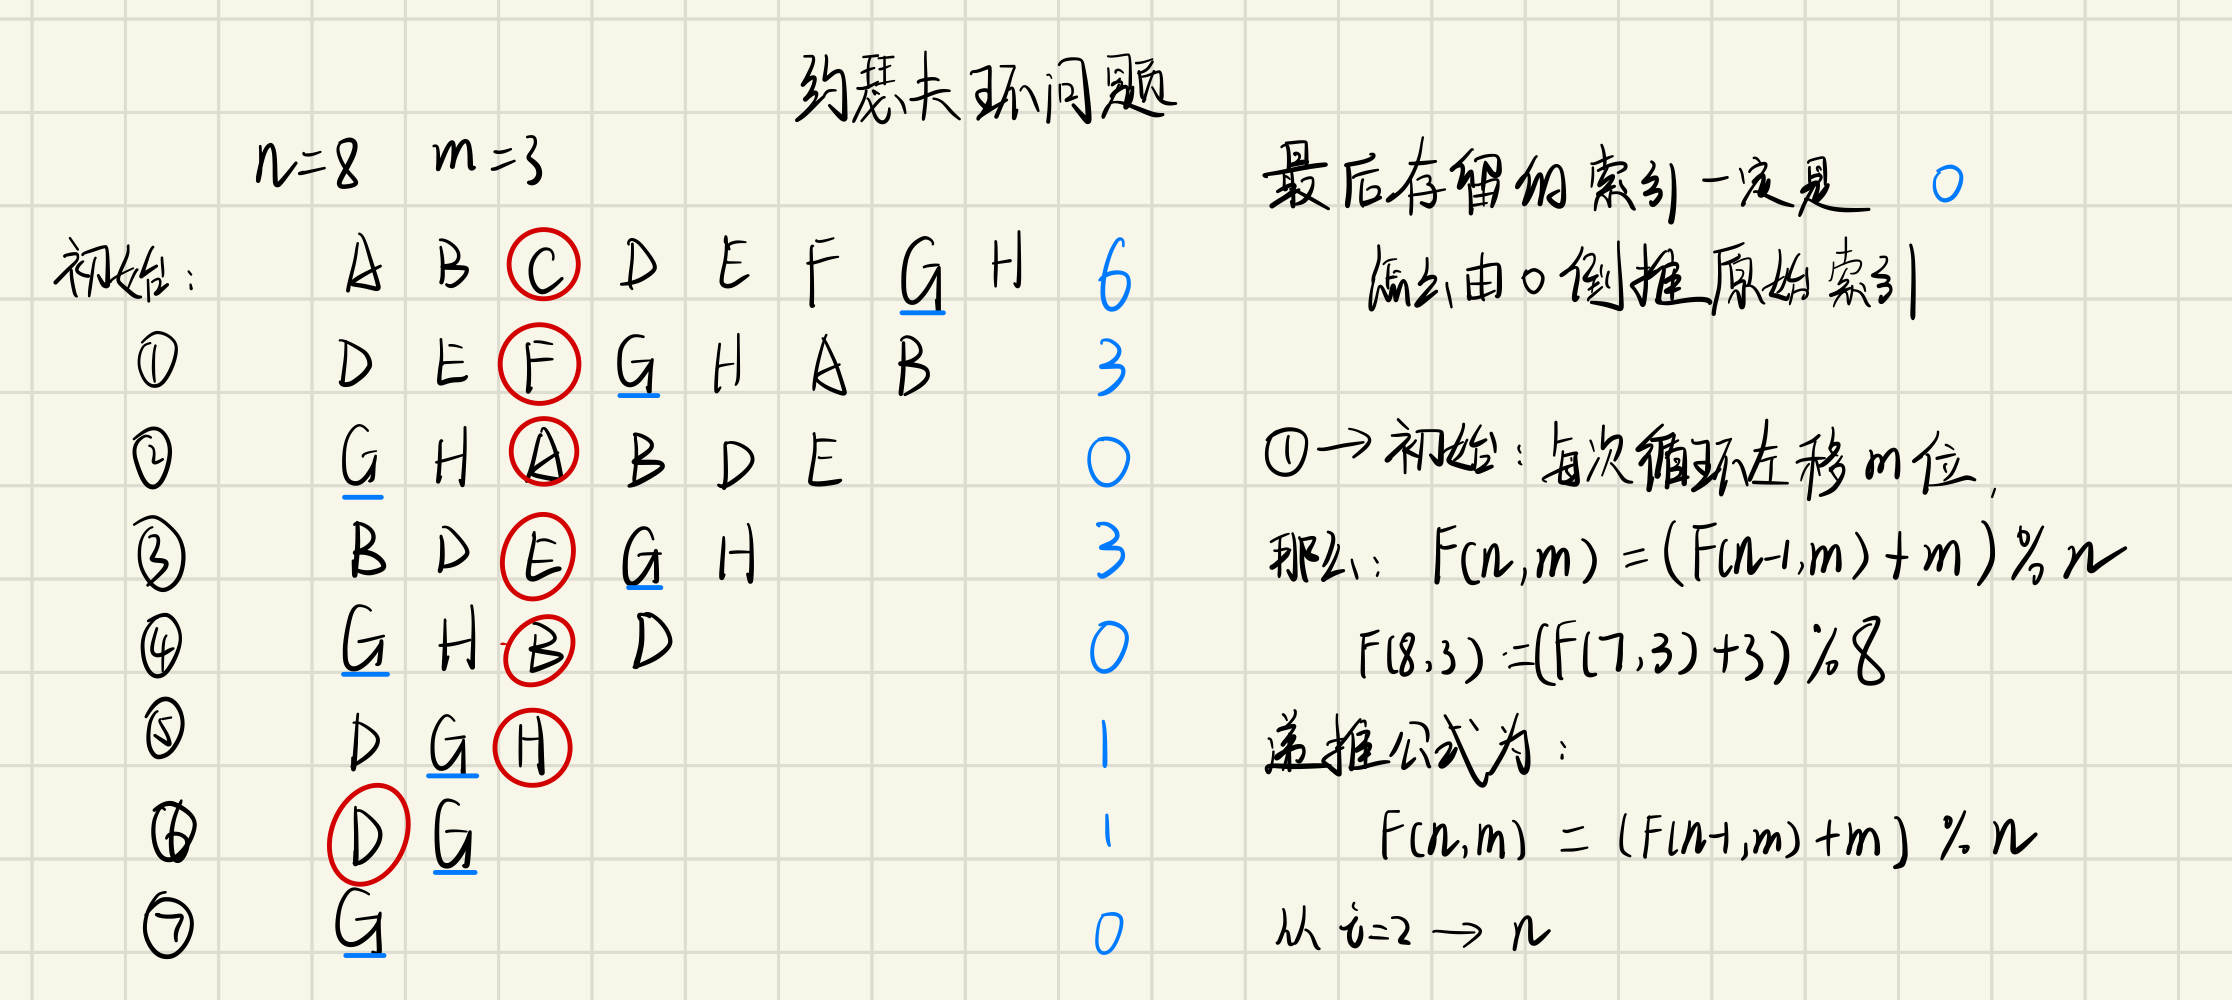 约瑟夫环问题
n=8 m=3
初始: A B C D E F G H 6
① D E F G H A B 3
② G H A B D E 0
③ B D E G H 3
④ G H B D 0
⑤ D G H 1
⑥ D G 1
⑦ G 0
最后存留的索引一定是 0
由0倒推原始索引
①→初始: 每次循环左移m位,
那么: F(n,m) = (F(n-1,m)+m)%n
F(8,3) = (F(7,3)+3)%8
递推公式为:
F(n,m) = (F(n-1,m)+m) % n
从 i=2 → n